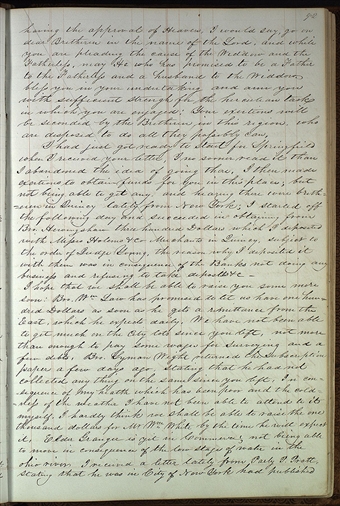 92
having the approval of Heaven, I would say, go on
dear Brethren in the name of the Lord, and while
you are pleading the cause of the Widdow and the
Fatherless, may He who has promised to be a Father
to the Fatherless and a husband to the Widdow,
bless you in your undertaking and arm you
with sufficient strength for the herculean task
in which you are engaged. Your exertions will
be seconded by the Brethren in this region, who
are disposed to do all they possibly can.
I had just got ready to start for Springfield
when I received your letter, I no sooner read it than
I abandoned the idea of going there. I then made
exertions to obtain funds for you in this place, but
not being able to get any, and hearing there were breth-
ren in Quincy lately from New York, I started off
the following day and succeeded in obtaining from
Bro. Herringshaw three hundred Dollars which I deposited
with Messrs Holmes & Co Merchants in Quincy, subject to
the order of Judge Young, the reason why I deposited it
with them was in consequence of the Banks not doing any
business and refusing to take deposits &c—
I hope that we shall be able to raise you some more
soon. Bro. Wm. Law has promised to let us have one hun-
dred Dollars as soon as he gets a remittance from the
East, which he expects daily. We have not been able
to get much in the City lots since you left, not more
than enough to pay some wages for Surveying and a
few debts. Bro. Lyman Wight returned the subscription
paper a few days ago, stating that he had not
collected any thing on the same since you left. In con-
sequence of my health which has been poor and the cold-
ness of the weather, I have not been able to attend to it
myself. I hardly think we shall be able to raise the one
thousand dollars for Mr. Wm. White by the time he will expect
it. Elder Granger is yet in Commerce, not being able
to move in consequence of the low stage of water in the
Ohio river. I received a letter lately from Parly P. Pratt,
stating that he was in City of New York had published